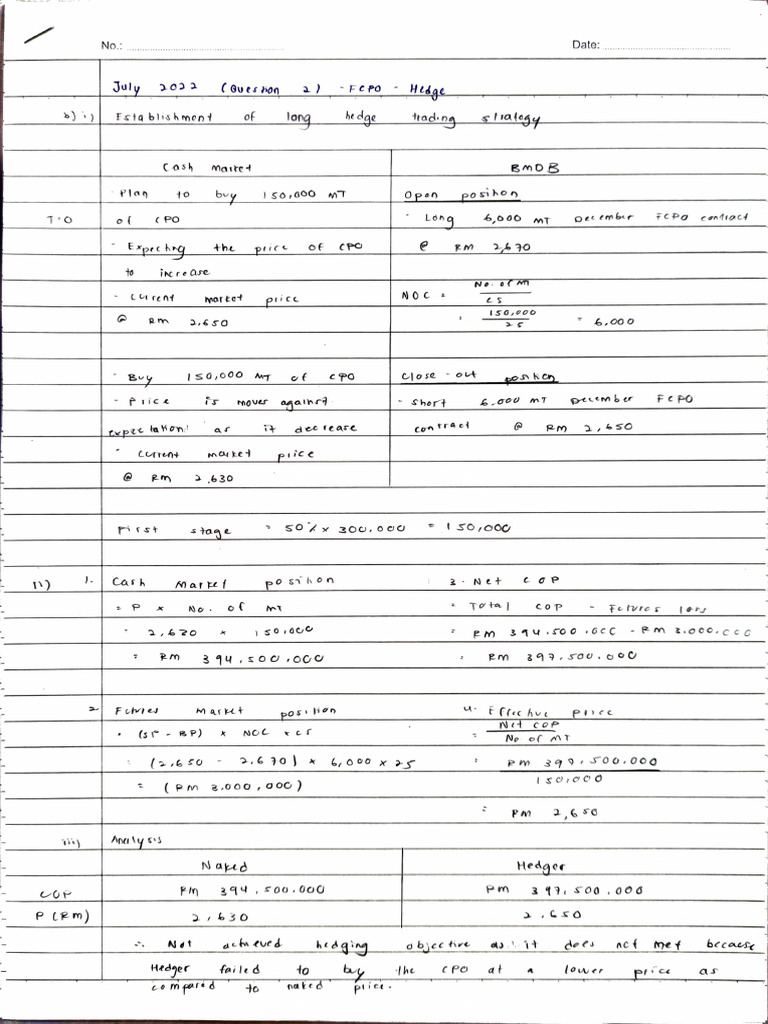 No.: Date:
July 2022 (Question 2) - FCPO - Hedge
b) i) Establishment of long hedge trading strategy
Cash Market
- Plan to buy 150,000 MT
T=0 of CPO
- Expecting the price of CPO
to increase
- Current market price
@ RM 2,650
- Buy 150,000 MT of CPO
- Price is moves against
expectation as it decrease
- Current market price
@ RM 2,630
BMDB
Open position
- Long 6,000 MT December FCPO contract
@ RM 2,670
NOC = No. of MT
CS
= 150,000
25 = 6,000
Close-out position
- Short 6,000 MT December FCPO
contract @ RM 2,650
First stage = 50% x 300.000 = 150,000
ii) 1. Cash Market position
= P x No. of MT
= 2,630 x 150,000
= RM 394,500,000
2. Futures Market position
= (SP - BP) x NOC x CS
= (2,650 - 2,670) x 6,000 x 25
= (RM 3,000,000)
3. Net COP
= Total COP - Futures loss
= RM 394.500.000 - RM 3.000.000
= RM 397,500.000
4. Effective price
= Net COP
No of MT
= RM 397,500.000
150,000
= RM 2,650
iii) Analysis
Naked Hedger
COP RM 394,500.000 RM 397,500.000
P (RM) 2,630 2,650
∴ Not achieved hedging objective as it does not met because
Hedger failed to buy the CPO at a lower price as
compared to naked price.